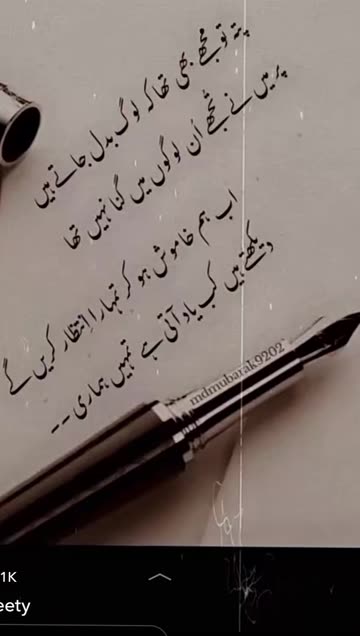 پتہ تو مجھے بھی تھا کہ لوگ بدل جاتے ہیں
پر میں نے تجھے اُن لوگوں میں گنا نہیں تھا
اب ہم خاموش ہو کر تمہارا انتظار کریں گے
دیکھتے ہیں کب یاد آتی ہے تمہیں ہماری --
mdmubarak9202
1K
eety